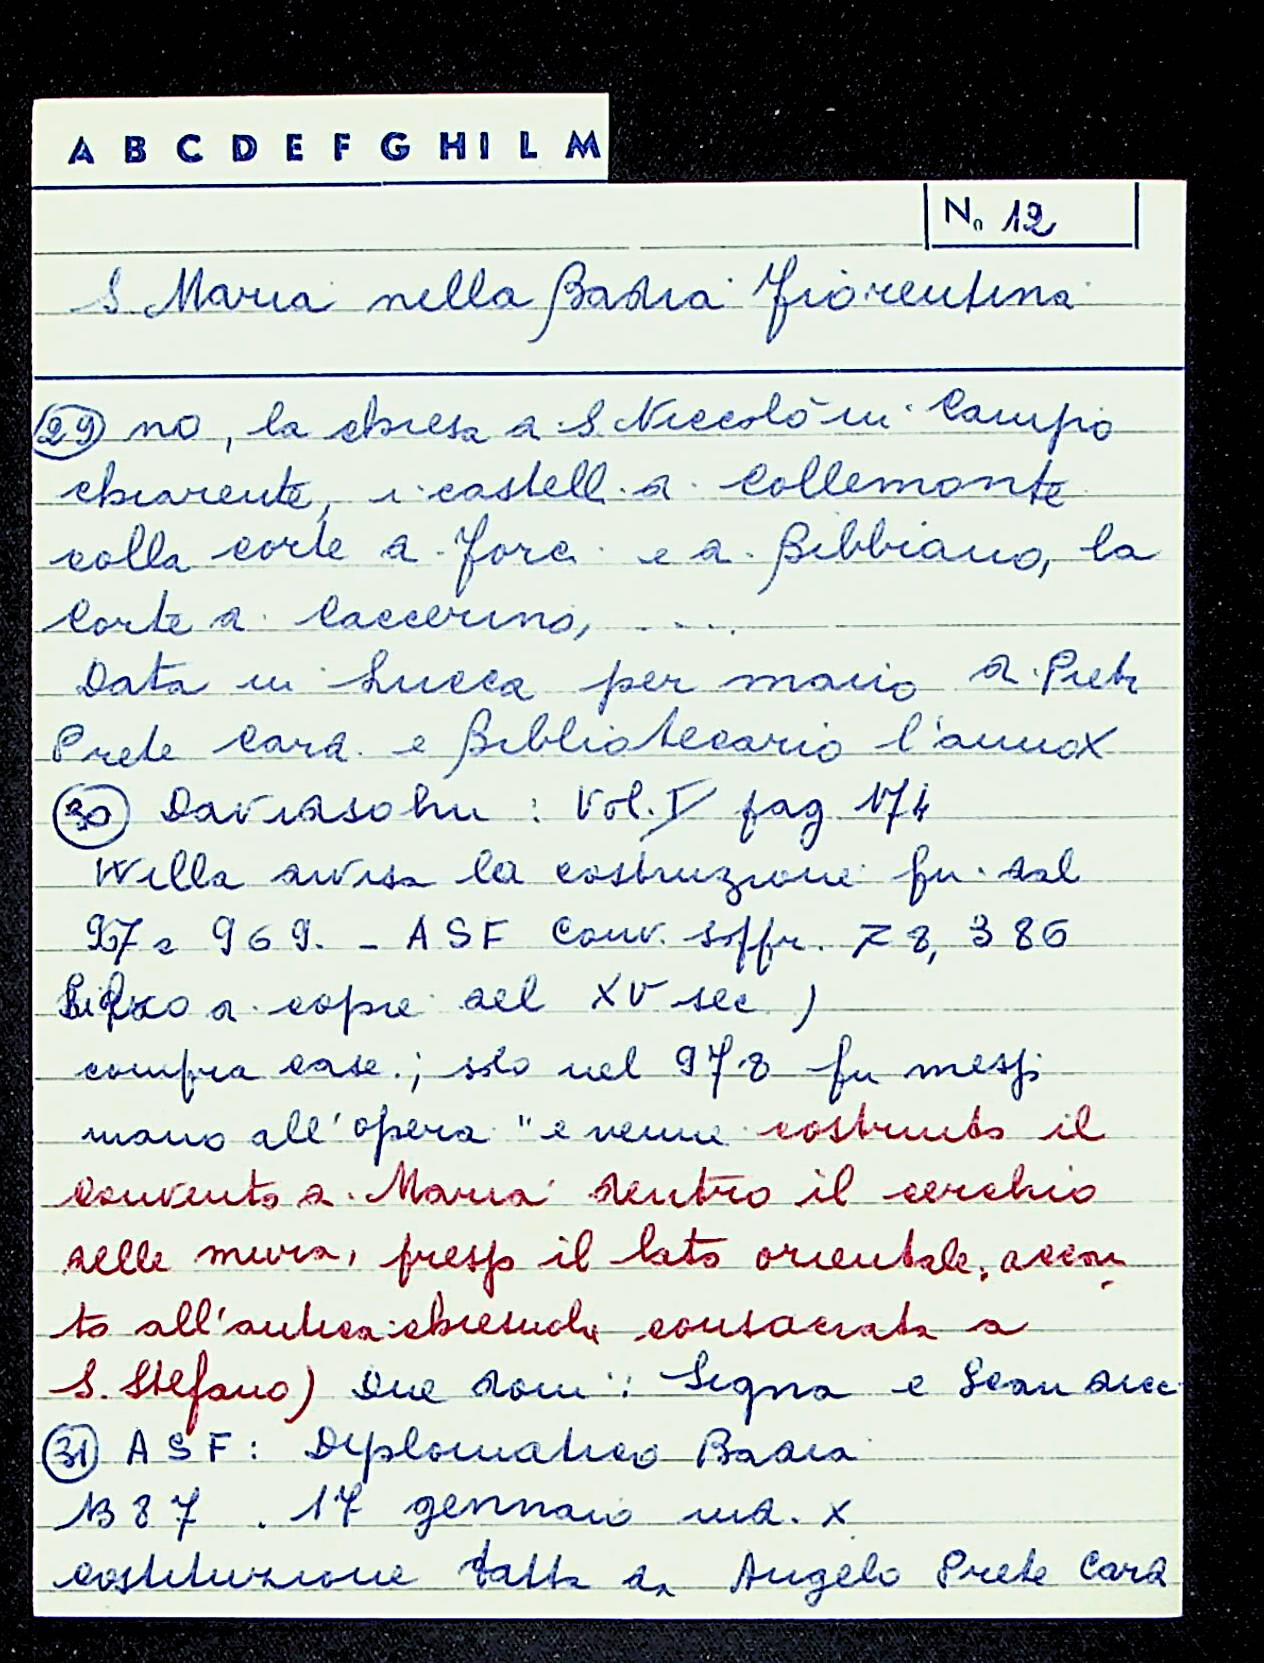 A B C D E F G H I L M
N. 12
S Maria nella Badia Fiorentina
29 no, la chiesa di S. Niccolò in Campo
chiarente, i castelli di Collemonte
colla corte di Fore e di Bibbiano, la
Corte di Caccerino, ....
Data in Lucca per mano di Pietr
Prete Card. e Bibliotecario l'anno X
30 Davidsohn: Vol. I pag 174
Willa divisa la costruzione fu dal
967 a 969. - ASF Conv. soppr. 78, 386
di copie del XV sec)
compra case.; solo nel 978 fu messo
mano all'opera "e venne costruito il
Convento di Maria dentro il cerchio
delle mura, presso il lato orientale, accan
to all'antica chiesuola consacrata a
S. Stefano) Due doni: Signa e
31 ASF: Diplomatico Badia
1387 . 17 gennaio ind. X
costituzione fatta da Angelo Prete Card